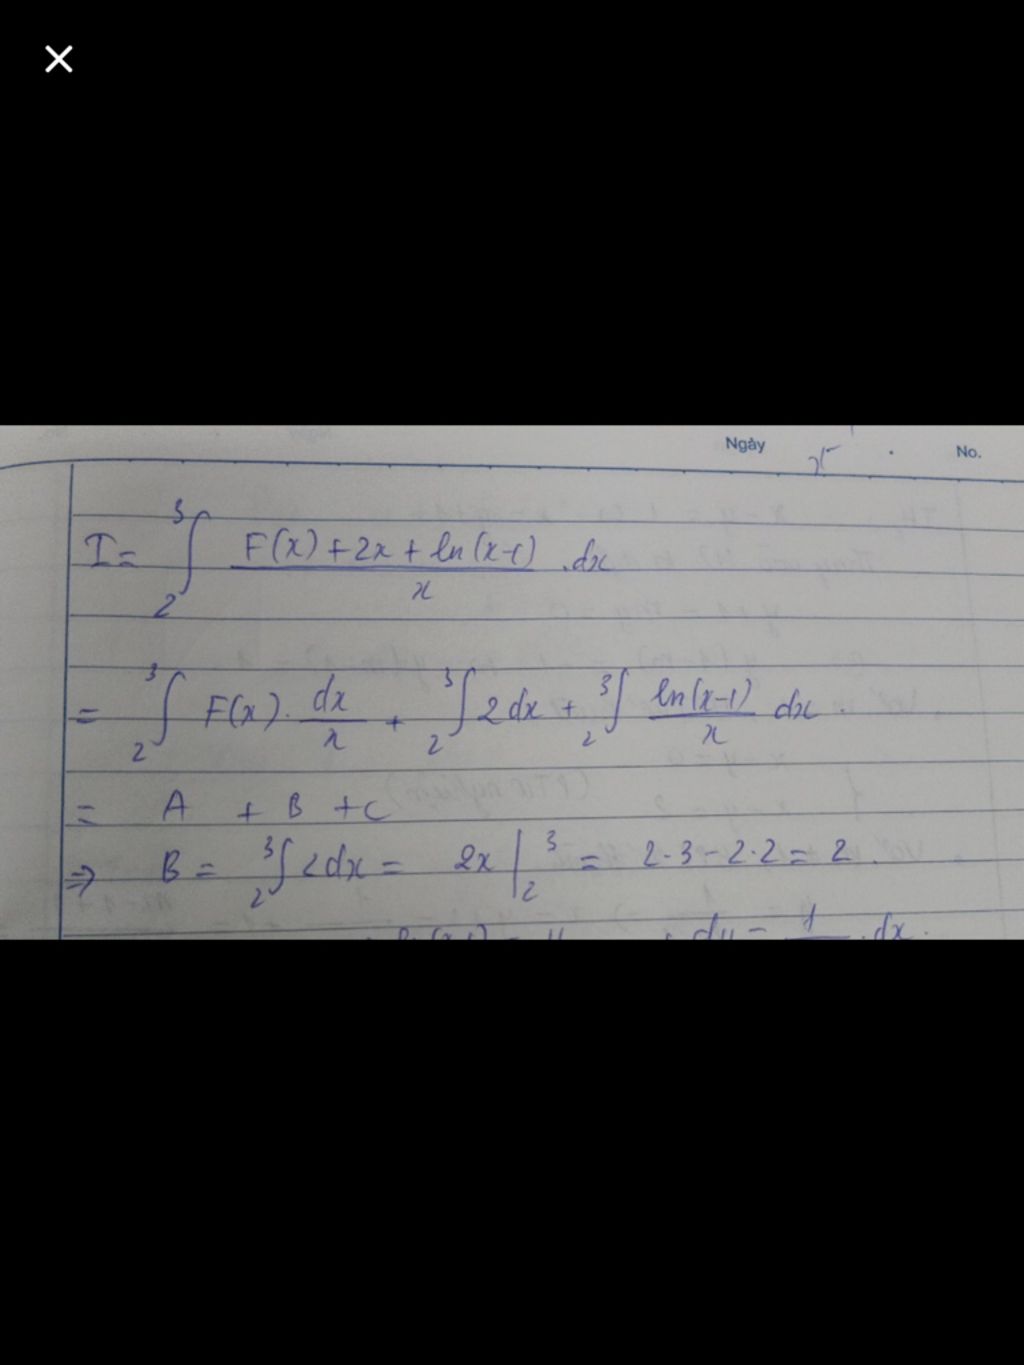 Ngày
No.
I = ∫₂³ (F(x) + 2x + ln(x-1))/x . dx
= ∫₂³ F(x) . dx/x + ∫₂³ 2dx + ∫₂³ ln(x-1)/x dx .
= A + B + C
⇒ B = ∫₂³ 2dx = 2x |₂³ = 2.3 - 2.2 = 2 .